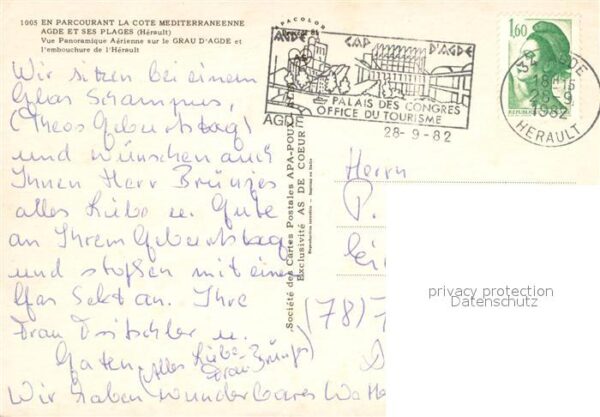 1005 EN PARCOURANT LA COTE MEDITERRANEENNE
AGDE ET SES PLAGES (Hérault)
Vue Panoramique Aérienne sur le GRAU D'AGDE et
l'embouchure de l'Hérault
APACOLOR
AGDE
CAP D'AGDE
PALAIS DES CONGRES
OFFICE DU TOURISME
28-9-82
1,60
34 AGDE
18H15
28-9
1982
HERAULT
Wir sitzen bei einem
Glas Schampus,
(Theos Geburtstag)
und wünschen auch
Ihnen Herr Brünjes
alles Liebe u. Gute
an Ihrem Geburtstag
und stoßen mit einem
Glas Sekt an. Ihre
Frau u.
Gaten. (Alles Liebe
Frau Brünjes)
Wir haben wunderbares
Société des Cartes Postales APA-POUX
Exclusivité AS DE COEUR
Reproduction interdite
Herrn
P.
(78)7
privacy protection
Datenschutz